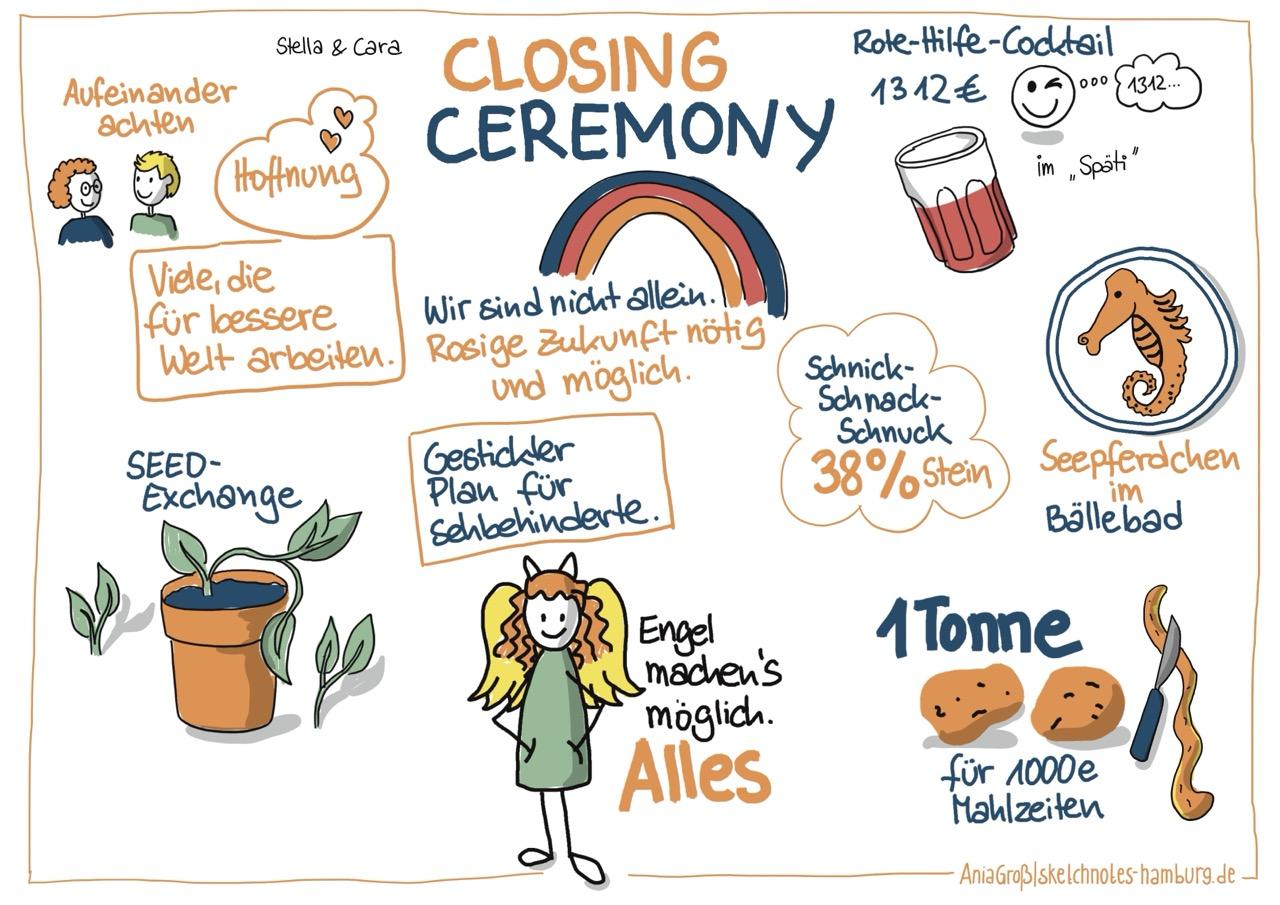 Stella & Cara
CLOSING
CEREMONY
Aufeinander
achten
Hoffnung
Viele, die
für bessere
Welt arbeiten.
Wir sind nicht allein.
Rosige Zukunft nötig
und möglich.
Rote-Hilfe-Cocktail
1312€
1312...
im „Späti"
Schnick-
Schnack-
Schnuck
38% Stein
Seepferdchen
im
Bällebad
SEED-
Exchange
Gestickter
Plan für
sehbehinderte.
Engel
machen's
möglich.
Alles
1 Tonne
für 1000e
Mahlzeiten
AniaGroß|sketchnotes-hamburg.de